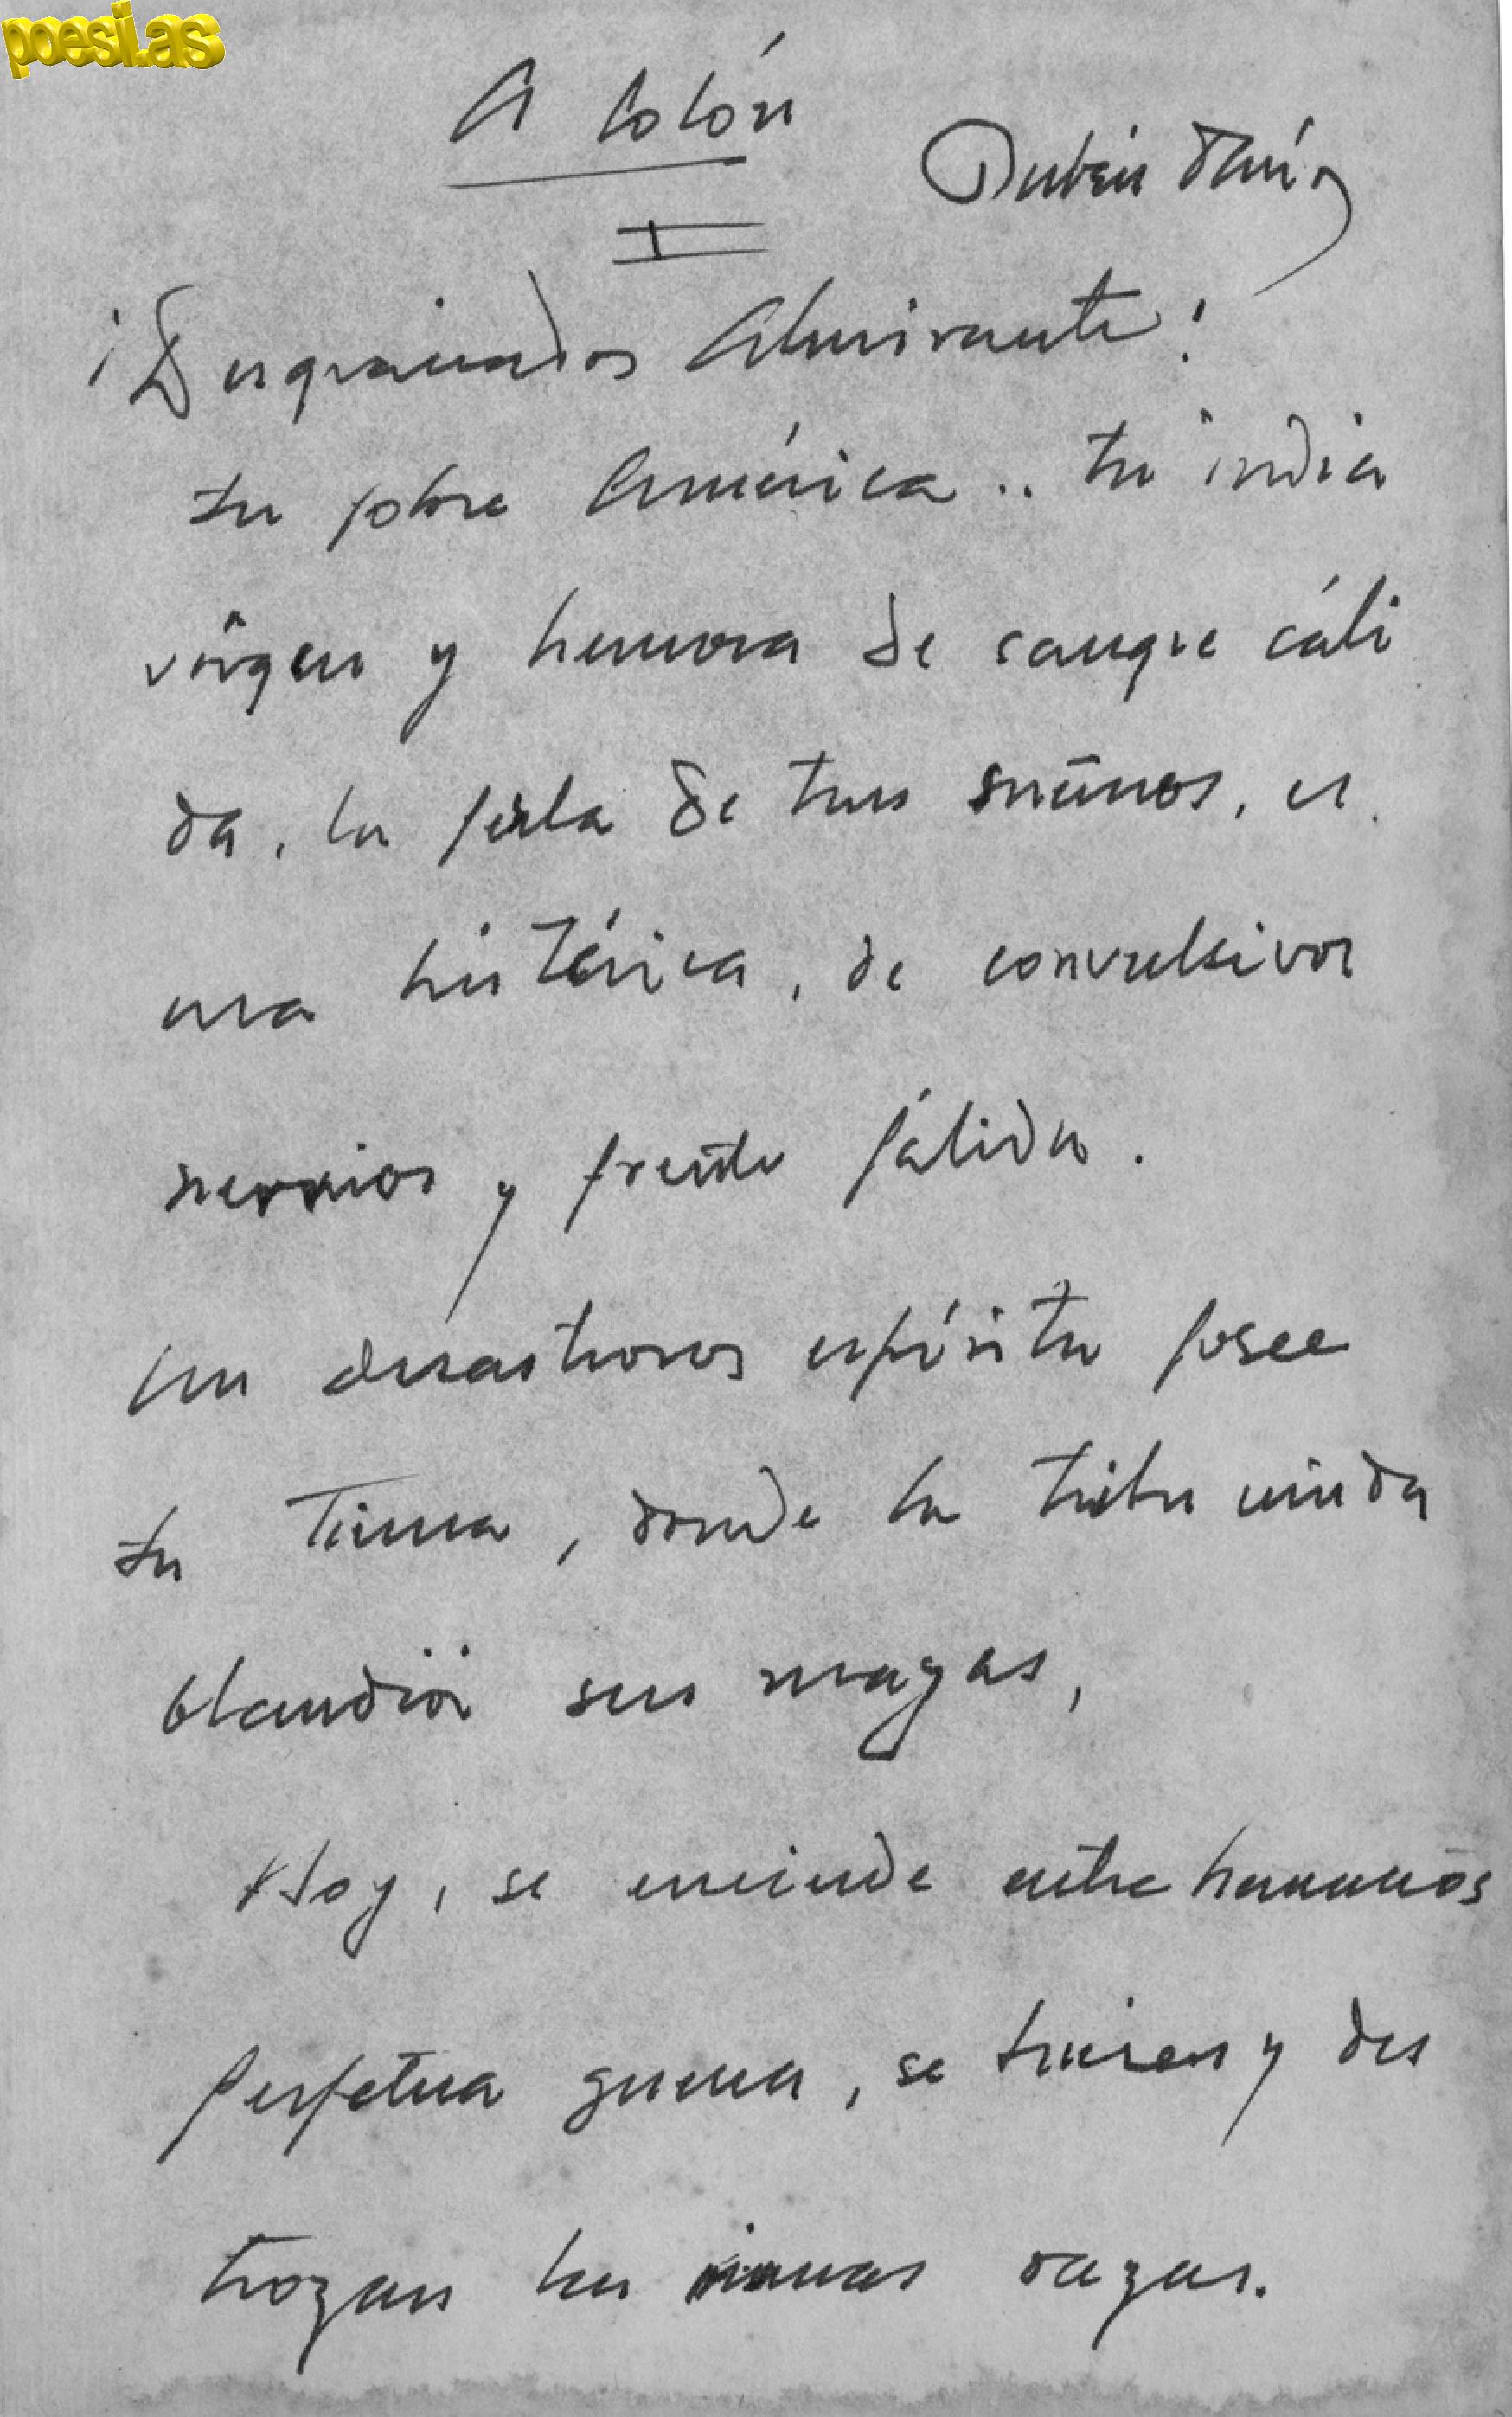 poesi.as
A Colón
Rubén Darío
I
¡Desgraciado Almirante!
tu pobre América.. tu india
vírgen y hermosa de sangre cáli
da, la perla de tus sueños, es
una histérica, de convulsivos
nervios y frente pálida.
Un desastroso espíritu posee
tu tierra, donde la tribu unida
blandió sus mazas,
Hoy, se enciende entre hermanos
perpetua guerra, se hieren y des
trozan las mismas razas.